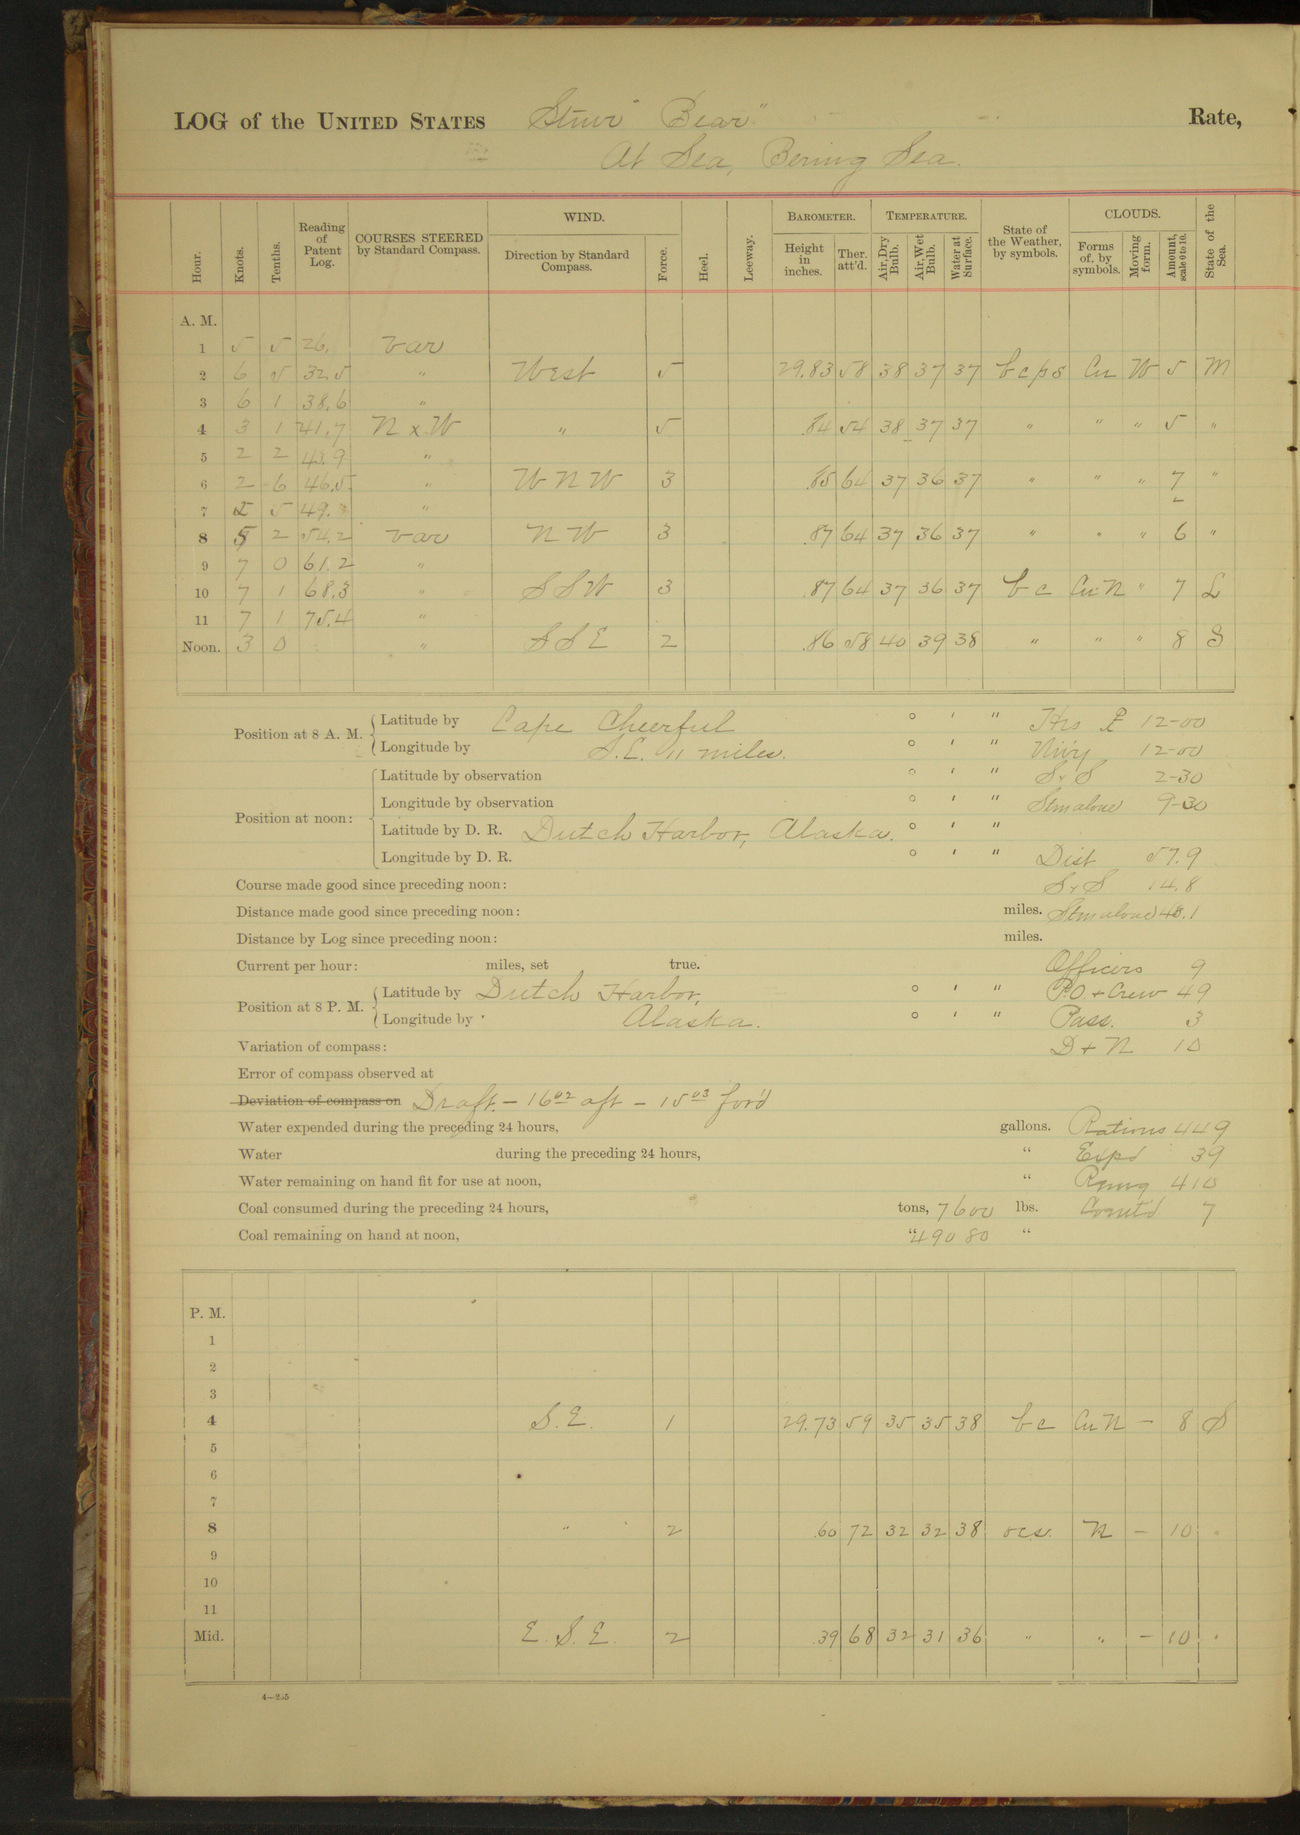 LOG of the UNITED STATES Stmr "Bear" Rate,
At Sea, Bering Sea.
Hour. Knots. Tenths. Reading of Patent Log. COURSES STEERED by Standard Compass. WIND. Direction by Standard Compass. Force. Heel. Leeway. BAROMETER. Height in inches. Ther. att'd. TEMPERATURE. Air, Dry Bulb. Air, Wet Bulb. Water at Surface. State of the Weather, by symbols. CLOUDS. Forms of, by symbols. Moving form. Amount, scale 0 to 10. State of the Sea.
A. M.
1 5 5 26. Var
2 6 5 32.5 " West 5 29.83 58 38 37 37 bcps Cu W 5 M
3 6 1 38.6 "
4 3 1 41.7 N x W " 5 .84 54 38 37 37 " " " 5 "
5 2 2 43.9 "
6 2 6 46.5 " W N W 3 .85 64 37 36 37 " " " 7 "
7 5 49. "
8 5 2 54.2 Var N W 3 .87 64 37 36 37 " " " 6 "
9 7 0 61.2 "
10 7 1 68.3 " S S W 3 .87 64 37 36 37 b c Cu N " 7 L
11 7 1 75.4 "
Noon. 3 0 " S S E 2 .86 58 40 39 38 " " " 8 S
Position at 8 A. M. Latitude by Cape Cheerful ° ' " Hrs 12-00
Longitude by S.E. 11 miles. ° ' " Nivg 12-00
Position at noon: Latitude by observation ° ' " S + S 2-30
Longitude by observation ° ' " Stm alone 9-30
Latitude by D. R. Dutch Harbor, Alaska. ° ' "
Longitude by D. R. ° ' " Dist 57.9
Course made good since preceding noon: S + S 14.8
Distance made good since preceding noon: miles. Stm alone 43.1
Distance by Log since preceding noon: miles.
Current per hour: miles, set true. Officers 9
Position at 8 P. M. Latitude by Dutch Harbor, ° ' " P.O. + Crew 49
Longitude by Alaska. ° ' " Pass. 3
Variation of compass: D + N 10
Error of compass observed at
Deviation of compass on Draft. - 16 02 aft - 15 03 for'd
Water expended during the preceding 24 hours, gallons. Rations 449
Water during the preceding 24 hours, " Exp'd 39
Water remaining on hand fit for use at noon, " Rmng 410
Coal consumed during the preceding 24 hours, tons, 7600 lbs. Comut'd 7
Coal remaining on hand at noon, " 490 80 "
P. M.
1
2
3
4 S. E. 1 29.73 59 35 35 38 b c Cu N - 8 S
5
6
7
8 " 2 .60 72 32 32 38 ocs. N - 10 "
9
10
11
Mid. E. S. E. 2 .39 68 32 31 36 " " - 10 "
4—255